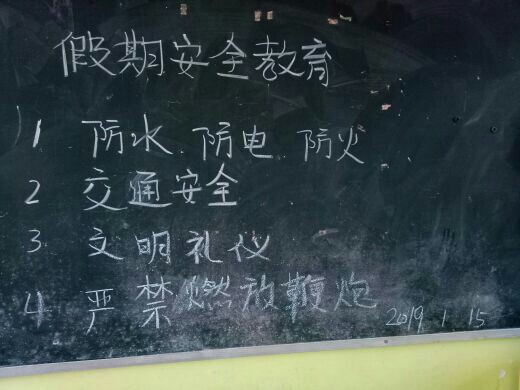 假期安全教育
1 防水 防电 防火
2 交通安全
3 文明礼仪
4 严禁燃放鞭炮
2019 1 15